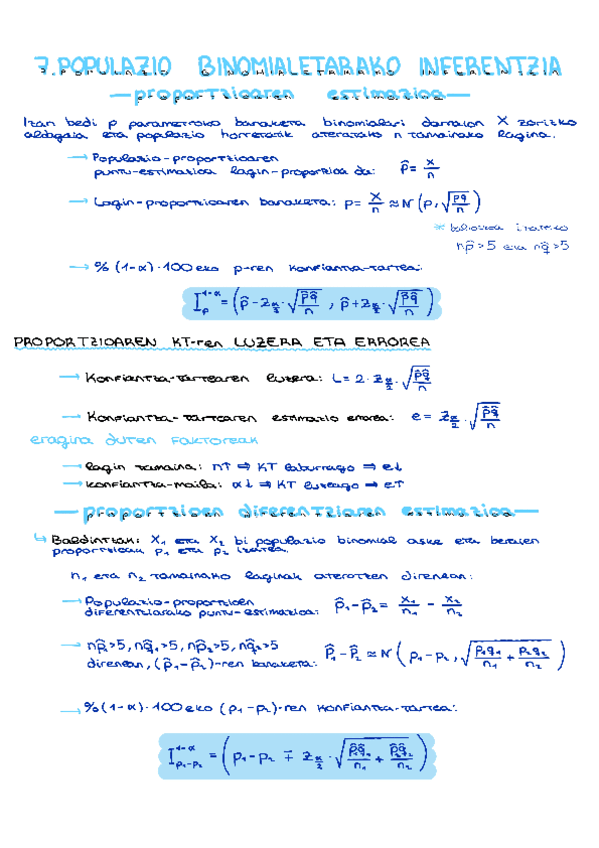 7. POPULAZIO BINOMIALETARAKO INFERENTZIA
— proportzioaren estimazioa —
Izan bedi p parametroko banaketa binomialari darraion X zorizko
aldagaia eta populazio horretatik ateratako n tamainako lagina.
→ Populazio-proportzioaren
puntu-estimazioa lagin-proportzioa da: p̂ = x/n
→ Lagin-proportzioaren banaketa: p = X/n ≈ N(p, √(pq/n))
* baliozkoa izateko
np̂ > 5 eta nq̂ > 5
→ % (1-α)·100eko p-ren konfiantza-tartea:
I_p^(1-α) = (p̂ - z_(α/2)·√(p̂q̂/n) , p̂ + z_(α/2)·√(p̂q̂/n))
PROPORTZIOAREN KT-ren LUZERA ETA ERROREA
→ Konfiantza-tartearen luzera: L = 2·z_(α/2)·√(p̂q̂/n)
→ Konfiantza-tartearen estimazio errorea: e = z_(α/2)·√(p̂q̂/n)
eragina duten faktoreak
→ lagin tamaina: n↑ ⇒ KT laburrago ⇒ e↓
→ konfiantza-maila: α↓ ⇒ KT luzeago ⇒ e↑
— proportzioen diferentziaren estimazioa —
↳ Baldintzak: X₁ eta X₂ bi populazio binomial aske eta beraien
proportzioak p₁ eta p₂ izatea.
n₁ eta n₂ tamainako laginak ateratzen direnean:
→ Populazio-proportzioen
diferentziarako puntu-estimazioa: p̂₁ - p̂₂ = x₁/n₁ - x₂/n₂
→ np̂₁>5, nq̂₁>5, np̂₂>5, nq̂₂>5
direnean, (p̂₁-p̂₂)-ren banaketa: p̂₁ - p̂₂ ≈ N(p₁-p₂, √(p₁q₁/n₁ + p₂q₂/n₂))
→ % (1-α)·100eko (p₁-p₂)-ren konfiantza-tartea:
I_(p₁-p₂)^(1-α) = (p₁-p₂ ∓ z_(α/2)·√(p̂₁q̂₁/n₁ + p̂₂q̂₂/n₂))